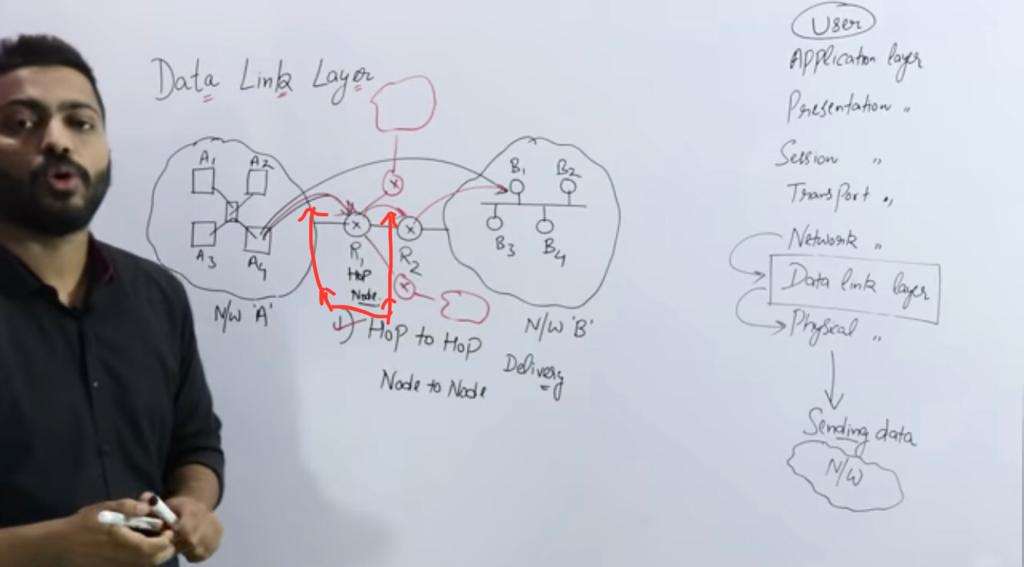 Data Link Layer
A1
A2
A3
A4
N/W 'A'
R1
Hop
Node
R2
B1
B2
B3
B4
N/W 'B'
1) Hop to Hop
Delivery
Node to Node
User
Application layer
Presentation "
Session "
Transport "
Network "
Data link layer
Physical "
Sending data
N/W